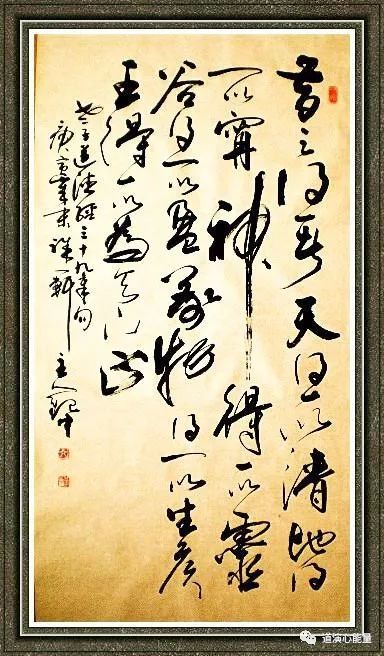 昔之得一者天得一以清地得
一以寧神得一以靈
谷得一以盈萬物得一以生侯
王得一以為天下正
老子道德經三十九章句
庚寅
道演心能量